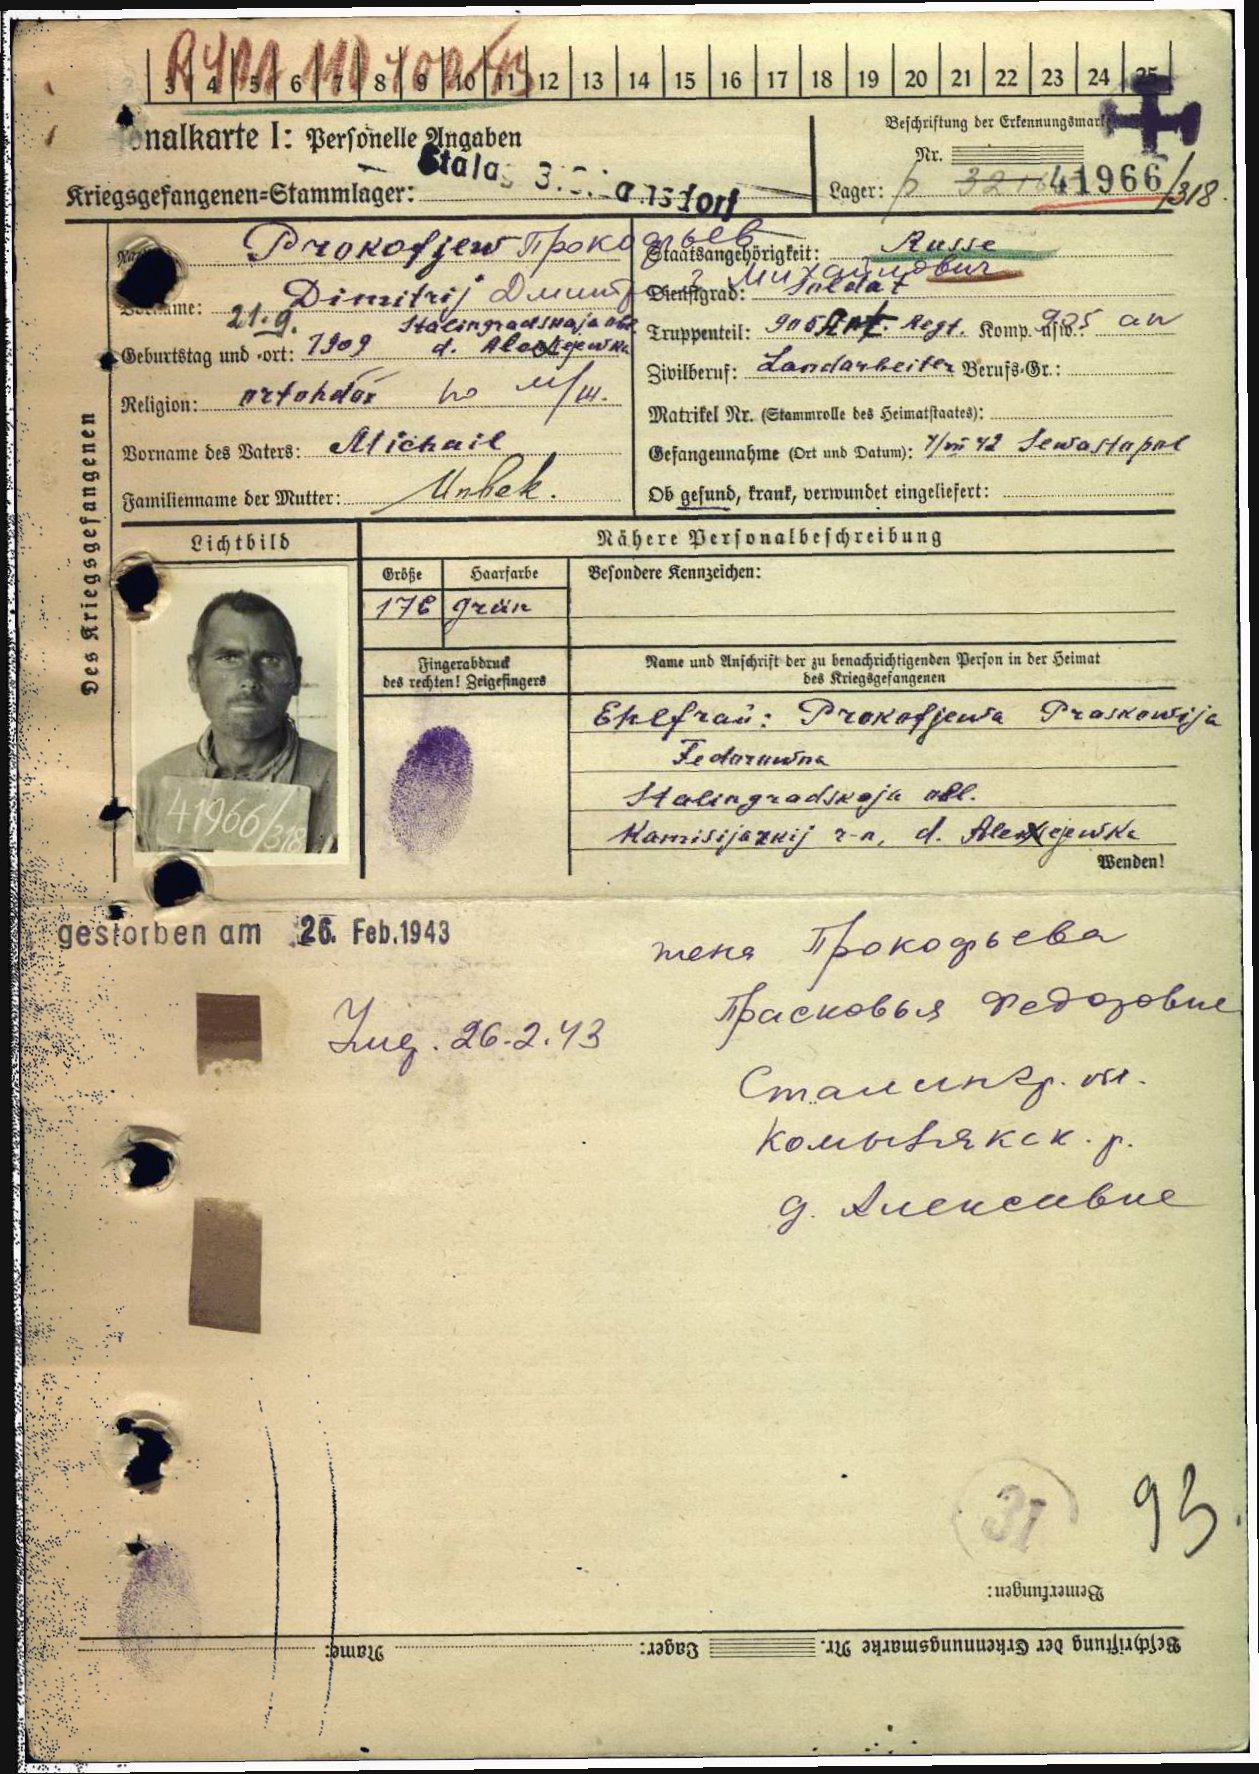 3 4 5 6 7 8 9 10 11 12 13 14 15 16 17 18 19 20 21 22 23 24 25
onalkarte I: Personelle Angaben
Beschriftung der Erkennungsmarke
Nr.
Kriegsgefangenen=Stammlager: Stala 3
Lager: 41966/318
Des Kriegsgefangenen
Prokofjew Прокофьев
Vorname: Dimitrij
Geburtstag und =ort: 21.9. 1909 Stalingradskaja obl. d. Alexejewka
Religion: ortohdox
Vorname des Vaters: Michail
Familienname der Mutter: Unbek.
Staatsangehörigkeit: Russe
Михайлович
Dienstgrad: Soldat
Truppenteil: 905 Art. Regt. Komp. usw.:
Zivilberuf: Landarbeiter Berufs=Gr.:
Matrikel Nr. (Stammrolle des Heimatstaates):
Gefangennahme (Ort und Datum): Sewastopol
Ob gesund, krank, verwundet eingeliefert:
Lichtbild
Nähere Personalbeschreibung
Größe Haarfarbe Besondere Kennzeichen:
grün
Fingerabdruck
des rechten! Zeigefingers
Name und Anschrift der zu benachrichtigenden Person in der Heimat
des Kriegsgefangenen
41966/318
Ehefrau: Prokofjewa Praskowija
Fedorowna
Stalingradskaja obl.
r-n, d. Alexejewka
Wenden!
gestorben am 26. Feb. 1943
26.2.43
жена Прокофьева
Прасковья Федоровне
Сталингр. обл.
д. Алексивне
31
93.
Bemerkungen:
Beschriftung der Erkennungsmarke Nr. Lager: Name: